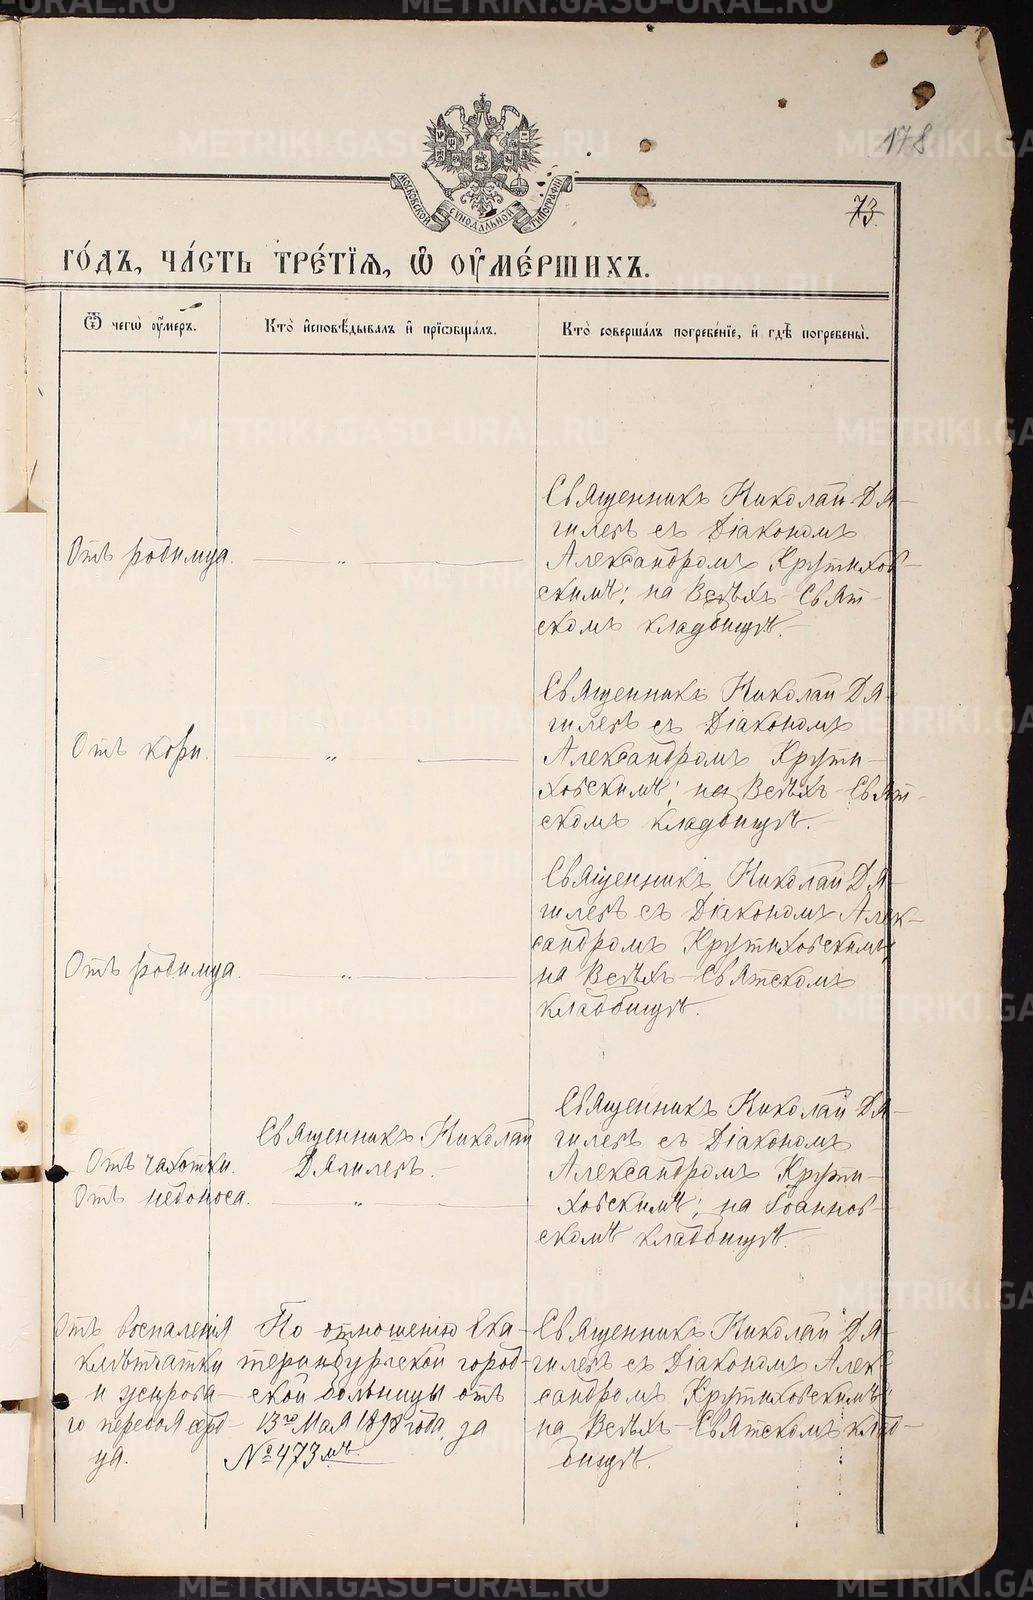 METRIKI.GASO-URAL.RU
178
МОСКОВСКОЙ СѴНОДАЛЬНОЙ ТИПОГРАФІИ
73.
ГО́ДЪ, ЧА́СТЬ ТРЕ́ТІѦ, Ѡ ОУМЕ́РШИХЪ.
Ѿ чегѡ̀ оу́меръ.
Кто̀ и҆сповѣ́дывалъ и҆ прїѡбща́лъ.
Кто̀ соверша́лъ погребе́нїе, и҆ гдѣ̀ погребены̀.
Отъ родимца. — „ —
Священникъ Николай Дя-
гилевъ съ Діакономъ
Александромъ Крутихов-
скимъ; на Всѣхъ-Свят-
скомъ кладбищѣ.
Отъ кори. — „ —
Священникъ Николай Дя-
гилевъ съ Діакономъ
Александромъ Крути-
ховскимъ; на Всѣхъ-Свят-
скомъ кладбищѣ.
Отъ родимца. — „ —
Священникъ Николай Дя-
гилевъ съ Діакономъ Алек-
сандромъ Крутиховскимъ;
на Всѣхъ-Святскомъ
кладбищѣ.
Отъ чахотки.
Отъ недоноса. — „ —
Священникъ Николай
Дягилевъ.
Священникъ Николай Дя-
гилевъ съ Діакономъ
Александромъ Крути-
ховскимъ; на Іоаннов-
скомъ кладбищѣ.
Отъ воспаленія
клѣтчатки
и жирова-
го перероя серд-
ца.
По отношенію Ека-
теринбургской город-
ской больницы отъ
13го Мая 1898 года, за
№ 473мъ.
Священникъ Николай Дя-
гилевъ съ Діакономъ Алек-
сандромъ Крутиховскимъ;
на Всѣхъ-Святскомъ клад-
бищѣ.